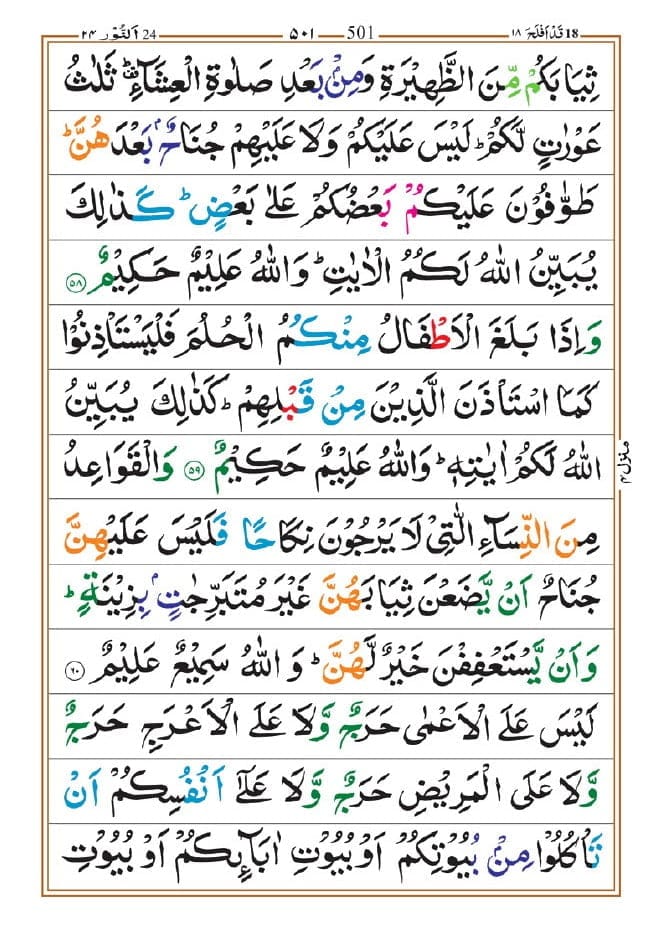 18 قَدْ اَفْلَحَ ١٨ 501 ٥٠١ 24 اَلنُّوْر ٢٤
ثِيَابَكُمْ مِّنَ الظَّهِيْرَةِ وَمِنْۢ بَعْدِ صَلٰوةِ الْعِشَآءِ ؕ۫ ثَلٰثُ
عَوْرٰتٍ لَّكُمْ ؕ لَيْسَ عَلَيْكُمْ وَلَا عَلَيْهِمْ جُنَاحٌۢ بَعْدَهُنَّ ؕ
طَوّٰفُوْنَ عَلَيْكُمْ بَعْضُكُمْ عَلٰى بَعْضٍ ؕ كَذٰلِكَ
يُبَيِّنُ اللّٰهُ لَكُمُ الْاٰيٰتِ ؕ وَاللّٰهُ عَلِيْمٌ حَكِيْمٌ ﴿٥٨﴾
وَاِذَا بَلَغَ الْاَطْفَالُ مِنْكُمُ الْحُلُمَ فَلْيَسْتَاْذِنُوْا
كَمَا اسْتَاْذَنَ الَّذِيْنَ مِنْ قَبْلِهِمْ ؕ كَذٰلِكَ يُبَيِّنُ
اللّٰهُ لَكُمْ اٰيٰتِهٖ ؕ وَاللّٰهُ عَلِيْمٌ حَكِيْمٌ ﴿٥٩﴾ وَالْقَوَاعِدُ
مِنَ النِّسَآءِ الّٰتِيْ لَا يَرْجُوْنَ نِكَاحًا فَلَيْسَ عَلَيْهِنَّ
جُنَاحٌ اَنْ يَّضَعْنَ ثِيَابَهُنَّ غَيْرَ مُتَبَرِّجٰتٍۭ بِزِيْنَةٍ ؕ
وَاَنْ يَّسْتَعْفِفْنَ خَيْرٌ لَّهُنَّ ؕ وَاللّٰهُ سَمِيْعٌ عَلِيْمٌ ﴿٦٠﴾
لَيْسَ عَلَى الْاَعْمٰى حَرَجٌ وَّلَا عَلَى الْاَعْرَجِ حَرَجٌ
وَّلَا عَلَى الْمَرِيْضِ حَرَجٌ وَّلَا عَلٰٓى اَنْفُسِكُمْ اَنْ
تَاْكُلُوْا مِنْۢ بُيُوْتِكُمْ اَوْ بُيُوْتِ اٰبَآئِكُمْ اَوْ بُيُوْتِ
منزل ٤